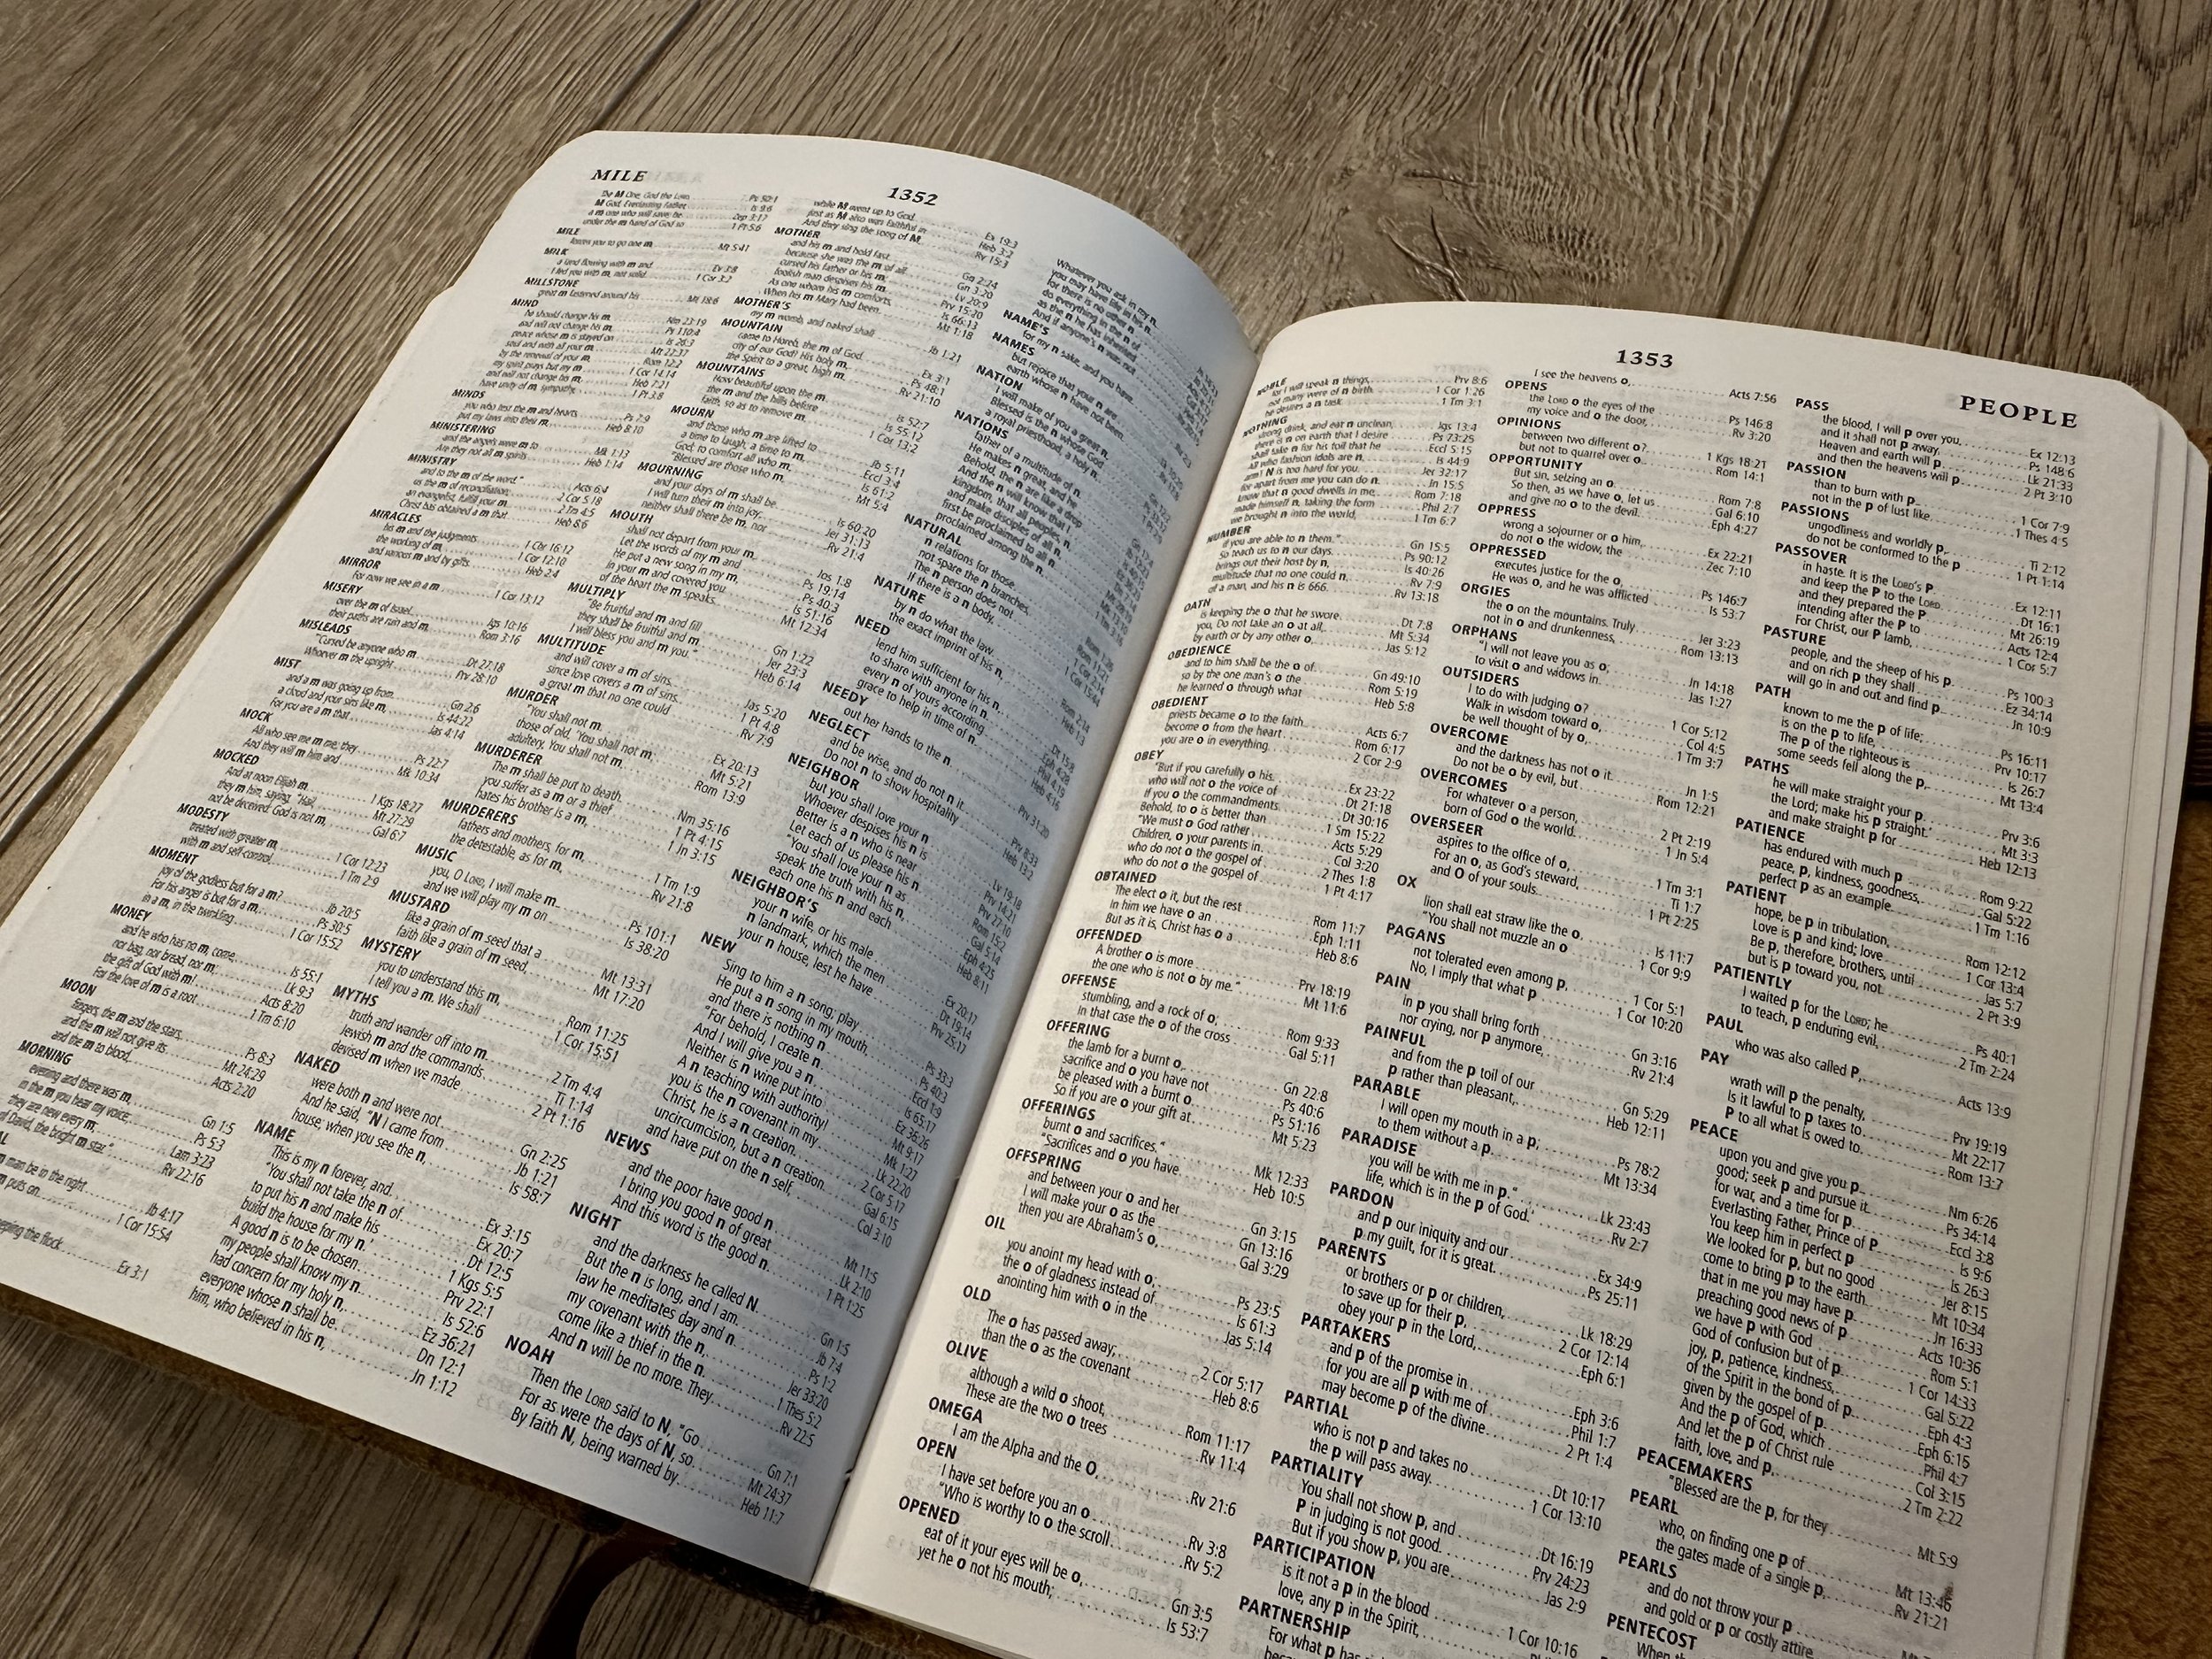 MILE
1352
The M One, God the LORD Ps 50:1
M God, Everlasting Father, Is 9:6
a m one who will save; he Zep 3:17
under the m hand of God so 1 Pt 5:6
MILE
forces you to go one m, Mt 5:41
MILK
a land flowing with m and Ex 3:8
I fed you with m, not solid 1 Cor 3:2
MILLSTONE
great m fastened around his Mt 18:6
MIND
he should change his m. Nm 23:19
and will not change his m, Ps 110:4
peace whose m is stayed on Is 26:3
soul and with all your m. Mt 22:37
by the renewal of your m, Rom 12:2
my spirit prays but my m 1 Cor 14:14
and will not change his m, Heb 7:21
have unity of m, sympathy, 1 Pt 3:8
MINDS
you who test the m and hearts Ps 7:9
put my laws into their m, Heb 8:10
MINISTERING
and the angels were m to Mk 1:13
Are they not all m spirits Heb 1:14
MINISTRY
and to the m of the word." Acts 6:4
us the m of reconciliation; 2 Cor 5:18
an evangelist, fulfill your m. 2 Tm 4:5
Christ has obtained a m that Heb 8:6
MIRACLES
his m and the judgments 1 Chr 16:12
the working of m, 1 Cor 12:10
and various m and by gifts Heb 2:4
MIRROR
For now we see in a m 1 Cor 13:12
MISERY
over the m of Israel. Jgs 10:16
their paths are ruin and m, Rom 3:16
MISLEADS
"Cursed be anyone who m Dt 27:18
Whoever m the upright Prv 28:10
MIST
and a m was going up from Gn 2:6
a cloud and your sins like m, Is 44:22
For you are a m that Jas 4:14
MOCK
All who see me m me; they Ps 22:7
And they will m him and Mk 10:34
MOCKED
And at noon Elijah m 1 Kgs 18:27
they m him, saying, "Hail, Mt 27:29
not be deceived: God is not m, Gal 6:7
MODESTY
treated with greater m, 1 Cor 12:23
with m and self-control, 1 Tm 2:9
MOMENT
joy of the godless but for a m? Jb 20:5
For his anger is but for a m, Ps 30:5
in a m, in the twinkling 1 Cor 15:52
MONEY
and he who has no m, come, Is 55:1
nor bag, nor bread, nor m; Lk 9:3
the gift of God with m! Acts 8:20
For the love of m is a root 1 Tm 6:10
MOON
fingers, the m and the stars, Ps 8:3
and the m will not give its Mt 24:29
and the m to blood, Acts 2:20
MORNING
evening and there was m, Gn 1:5
in the m you hear my voice; Ps 5:3
they are new every m; Lam 3:23
of David, the bright m star." Rv 22:16
man be in the right Jb 4:17
m puts on 1 Cor 15:54
keeping the flock Ex 3:1
while M went up to God. Ex 19:3
just as M also was faithful in Heb 3:2
And they sing the song of M, Rv 15:3
MOTHER
and his m and hold fast Gn 2:24
because she was the m of all Gn 3:20
cursed his father or his m; Lv 20:9
foolish man despises his m. Prv 15:20
As one whom his m comforts, Is 66:13
When his m Mary had been Mt 1:18
MOTHER'S
my m womb, and naked shall Jb 1:21
MOUNTAIN
came to Horeb, the m of God. Ex 3:1
city of our God! His holy m, Ps 48:1
the Spirit to a great, high m, Rv 21:10
MOUNTAINS
How beautiful upon the m Is 52:7
the m and the hills before Is 55:12
faith, so as to remove m, 1 Cor 13:2
MOURN
and those who m are lifted to Jb 5:11
a time to laugh; a time to m, Eccl 3:4
God; to comfort all who m; Is 61:2
"Blessed are those who m, Mt 5:4
MOURNING
and your days of m shall be Is 60:20
I will turn their m into joy; Jer 31:13
neither shall there be m, nor Rv 21:4
MOUTH
shall not depart from your m, Jos 1:8
Let the words of my m and Ps 19:14
He put a new song in my m, Ps 40:3
in your m and covered you Is 51:16
of the heart the m speaks. Mt 12:34
MULTIPLY
"Be fruitful and m and fill Gn 1:22
they shall be fruitful and m. Jer 23:3
I will bless you and m you." Heb 6:14
MULTITUDE
and will cover a m of sins. Jas 5:20
since love covers a m of sins. 1 Pt 4:8
a great m that no one could Rv 7:9
MURDER
"You shall not m. Ex 20:13
those of old, 'You shall not m; Mt 5:21
adultery, You shall not m, Rom 13:9
MURDERER
The m shall be put to death. Nm 35:16
you suffer as a m or a thief 1 Pt 4:15
hates his brother is a m, 1 Jn 3:15
MURDERERS
fathers and mothers, for m, 1 Tm 1:9
the detestable, as for m, Rv 21:8
MUSIC
you, O LORD, I will make m. Ps 101:1
and we will play my m on Is 38:20
MUSTARD
like a grain of m seed that a Mt 13:31
faith like a grain of m seed, Mt 17:20
MYSTERY
you to understand this m, Rom 11:25
I tell you a m. We shall 1 Cor 15:51
MYTHS
truth and wander off into m. 2 Tm 4:4
Jewish m and the commands Ti 1:14
devised m when we made 2 Pt 1:16
NAKED
were both n and were not Gn 2:25
And he said, "N I came from Jb 1:21
house; when you see the n, Is 58:7
NAME
This is my n forever, and Ex 3:15
"You shall not take the n of Ex 20:7
to put his n and make his Dt 12:5
build the house for my n.' 1 Kgs 5:5
A good n is to be chosen Prv 22:1
my people shall know my n. Is 52:6
had concern for my holy n, Ez 36:21
everyone whose n shall be Dn 12:1
him, who believed in his n, Jn 1:12
Whatever you ask in my n,
you may have life in his n.
for there is no other n
do everything in the n of
as the n he has inherited
And if anyone's n was not
NAME'S
for my n sake, and you have
NAMES
but rejoice that your n are
earth whose n have not been
NATION
I will make of you a great n,
Blessed is the n whose God
a royal priesthood, a holy n,
NATIONS
father of a multitude of n.
He makes n great, and he
Behold, the n are like a drop
And the n will know that I
kingdom, that all peoples, n,
and make disciples of all n,
first be proclaimed to all n.
proclaimed among the n,
NATURAL
n relations for those
not spare the n branches,
The n person does not
If there is a n body,
NATURE
by n do what the law
the exact imprint of his n,
NEED
lend him sufficient for his n,
to share with anyone in n.
every n of yours according
grace to help in time of n.
NEEDY
out her hands to the n. Prv 31:20
NEGLECT
and be wise, and do not n it. Prv 8:33
Do not n to show hospitality Heb 13:2
NEIGHBOR
but you shall love your n Lv 19:18
Whoever despises his n is Prv 14:21
Better is a n who is near Prv 27:10
Let each of us please his n Rom 15:2
"You shall love your n as Gal 5:14
speak the truth with his n, Eph 4:25
each one his n and each Heb 8:11
NEIGHBOR'S
your n wife, or his male Ex 20:17
n landmark, which the men Dt 19:14
your n house, lest he have Prv 25:17
NEW
Sing to him a n song; play Ps 33:3
He put a n song in my mouth, Ps 40:3
and there is nothing n Eccl 1:9
"For behold, I create n Is 65:17
And I will give you a n Ez 36:26
Neither is n wine put into Mt 9:17
A n teaching with authority! Mk 1:27
you is the n covenant in my Lk 22:20
Christ, he is a n creation. 2 Cor 5:17
circumcision, but a n creation. Gal 6:15
and have put on the n self, Col 3:10
NEWS
and the poor have good n Mt 11:5
I bring you good n of great Lk 2:10
And this word is the good n 1 Pt 1:25
NIGHT
and the darkness he called N. Gn 1:5
But the n is long, and I am Jb 7:4
law he meditates day and n. Ps 1:2
my covenant with the n, Jer 33:20
come like a thief in the n. 1 Thes 5:2
And n will be no more. They Rv 22:5
NOAH
Then the LORD said to N, "Go Gn 7:1
For as were the days of N, so Mt 24:37
By faith N, being warned by Heb 11:7
1353
PEOPLE
NOBLE
for I will speak n things, Prv 8:6
not many were of n birth. 1 Cor 1:26
he desires a n task. 1 Tm 3:1
NOTHING
strong drink, and eat n unclean, Jgs 13:4
there is n on earth that I desire Ps 73:25
shall take n for his toil that he Eccl 5:15
All who fashion idols are n, Is 44:9
arm! N is too hard for you. Jer 32:17
for apart from me you can do n. Jn 15:5
know that n good dwells in me, Rom 7:18
made himself n, taking the form Phil 2:7
we brought n into the world, 1 Tm 6:7
NUMBER
if you are able to n them." Gn 15:5
So teach us to n our days Ps 90:12
brings out their host by n, Is 40:26
multitude that no one could n, Rv 7:9
of a man, and his n is 666. Rv 13:18
OATH
is keeping the o that he swore Dt 7:8
you, Do not take an o at all, Mt 5:34
by earth or by any other o, Jas 5:12
OBEDIENCE
and to him shall be the o of Gn 49:10
so by the one man's o the Rom 5:19
he learned o through what Heb 5:8
OBEDIENT
priests became o to the faith. Acts 6:7
become o from the heart Rom 6:17
you are o in everything. 2 Cor 2:9
OBEY
"But if you carefully o his Ex 23:22
who will not o the voice of Dt 21:18
If you o the commandments Dt 30:16
Behold, to o is better than 1 Sm 15:22
"We must o God rather Acts 5:29
Children, o your parents in Col 3:20
who do not o the gospel of 2 Thes 1:8
who do not o the gospel of 1 Pt 4:17
OBTAINED
The elect o it, but the rest Rom 11:7
In him we have o an Eph 1:11
But as it is, Christ has o a Heb 8:6
OFFENDED
A brother o is more Prv 18:19
the one who is not o by me." Mt 11:6
OFFENSE
stumbling, and a rock of o; Rom 9:33
In that case the o of the cross Gal 5:11
OFFERING
the lamb for a burnt o, Gn 22:8
sacrifice and o you have not Ps 40:6
be pleased with a burnt o. Ps 51:16
So if you are o your gift at Mt 5:23
OFFERINGS
burnt o and sacrifices." Mk 12:33
"Sacrifices and o you have Heb 10:5
OFFSPRING
and between your o and her Gn 3:15
I will make your o as the Gn 13:16
then you are Abraham's o, Gal 3:29
OIL
you anoint my head with o; Ps 23:5
the o of gladness instead of Is 61:3
anointing him with o in the Jas 5:14
OLD
The o has passed away; 2 Cor 5:17
than the o as the covenant Heb 8:6
OLIVE
although a wild o shoot, Rom 11:17
These are the two o trees Rv 11:4
OMEGA
I am the Alpha and the O, Rv 21:6
OPEN
I have set before you an o Rv 3:8
"Who is worthy to o the scroll Rv 5:2
OPENED
eat of it your eyes will be o, Gn 3:5
yet he o not his mouth; Is 53:7
I see the heavens o, Acts 7:56
OPENS
the LORD o the eyes of the Ps 146:8
my voice and o the door, Rv 3:20
OPINIONS
between two different o? 1 Kgs 18:21
but not to quarrel over o. Rom 14:1
OPPORTUNITY
But sin, seizing an o Rom 7:8
So then, as we have o, let us Gal 6:10
and give no o to the devil. Eph 4:27
OPPRESS
wrong a sojourner or o him, Ex 22:21
do not o the widow, the Zec 7:10
OPPRESSED
executes justice for the o, Ps 146:7
He was o, and he was afflicted Is 53:7
ORGIES
the o on the mountains. Truly Jer 3:23
not in o and drunkenness, Rom 13:13
ORPHANS
"I will not leave you as o; Jn 14:18
to visit o and widows in Jas 1:27
OUTSIDERS
I to do with judging o? 1 Cor 5:12
Walk in wisdom toward o, Col 4:5
be well thought of by o, 1 Tm 3:7
OVERCOME
and the darkness has not o it. Jn 1:5
Do not be o by evil, but Rom 12:21
OVERCOMES
For whatever o a person, 2 Pt 2:19
born of God o the world. 1 Jn 5:4
OVERSEER
aspires to the office of o, 1 Tm 3:1
For an o, as God's steward, Ti 1:7
and O of your souls. 1 Pt 2:25
OX
lion shall eat straw like the o. Is 11:7
"You shall not muzzle an o 1 Cor 9:9
PAGANS
not tolerated even among p, 1 Cor 5:1
No, I imply that what p 1 Cor 10:20
PAIN
in p you shall bring forth Gn 3:16
nor crying, nor p anymore, Rv 21:4
PAINFUL
and from the p toil of our Gn 5:29
p rather than pleasant, Heb 12:11
PARABLE
I will open my mouth in a p; Ps 78:2
to them without a p. Mt 13:34
PARADISE
you will be with me in p." Lk 23:43
life, which is in the p of God.' Rv 2:7
PARDON
and p our iniquity and our Ex 34:9
p my guilt, for it is great. Ps 25:11
PARENTS
or brothers or p or children, Lk 18:29
to save up for their p, 2 Cor 12:14
obey your p in the Lord, Eph 6:1
PARTAKERS
and p of the promise in Eph 3:6
for you are all p with me of Phil 1:7
may become p of the divine 2 Pt 1:4
PARTIAL
who is not p and takes no Dt 10:17
the p will pass away. 1 Cor 13:10
PARTIALITY
You shall not show p, and Dt 16:19
P in judging is not good. Prv 24:23
But if you show p, you are Jas 2:9
PARTICIPATION
is it not a p in the blood 1 Cor 10:16
love, any p in the Spirit,
PARTNERSHIP
For what p has
PASS
the blood, I will p over you, Ex 12:13
and it shall not p away. Ps 148:6
Heaven and earth will p Lk 21:33
and then the heavens will p 2 Pt 3:10
PASSION
than to burn with p. 1 Cor 7:9
not in the p of lust like 1 Thes 4:5
PASSIONS
ungodliness and worldly p, Ti 2:12
do not be conformed to the p 1 Pt 1:14
PASSOVER
in haste. It is the LORD'S P Ex 12:11
and keep the P to the LORD Dt 16:1
and they prepared the P Mt 26:19
intending after the P to Acts 12:4
For Christ, our P lamb, 1 Cor 5:7
PASTURE
people, and the sheep of his p. Ps 100:3
and on rich p they shall Ez 34:14
will go in and out and find p. Jn 10:9
PATH
known to me the p of life; Ps 16:11
is on the p to life, Prv 10:17
The p of the righteous is Is 26:7
some seeds fell along the p, Mt 13:4
PATHS
he will make straight your p. Prv 3:6
the Lord; make his p straight.' Mt 3:3
and make straight p for Heb 12:13
PATIENCE
has endured with much p Rom 9:22
peace, p, kindness, goodness, Gal 5:22
perfect p as an example 1 Tm 1:16
PATIENT
hope, be p in tribulation, Rom 12:12
Love is p and kind; love 1 Cor 13:4
Be p, therefore, brothers, until Jas 5:7
but is p toward you, not 2 Pt 3:9
PATIENTLY
I waited p for the LORD; he Ps 40:1
to teach, p enduring evil, 2 Tm 2:24
PAUL
who was also called P, Acts 13:9
PAY
wrath will p the penalty, Prv 19:19
Is it lawful to p taxes to Mt 22:17
P to all what is owed to Rom 13:7
PEACE
upon you and give you p. Nm 6:26
good; seek p and pursue it. Ps 34:14
for war, and a time for p. Eccl 3:8
Everlasting Father, Prince of P Is 9:6
You keep him in perfect p Is 26:3
We looked for p, but no good Jer 8:15
come to bring p to the earth. Mt 10:34
that in me you may have p. Jn 16:33
preaching good news of p Acts 10:36
we have p with God Rom 5:1
God of confusion but of p. 1 Cor 14:33
joy, p, patience, kindness, Gal 5:22
of the Spirit in the bond of p. Eph 4:3
given by the gospel of p. Eph 6:15
And the p of God, which Phil 4:7
And let the p of Christ rule Col 3:15
faith, love, and p, 2 Tm 2:22
PEACEMAKERS
"Blessed are the p, for they Mt 5:9
PEARL
who, on finding one p of Mt 13:46
the gates made of a single p, Rv 21:21
PEARLS
and do not throw your p
and gold or p or costly attire
PENTECOST
When the